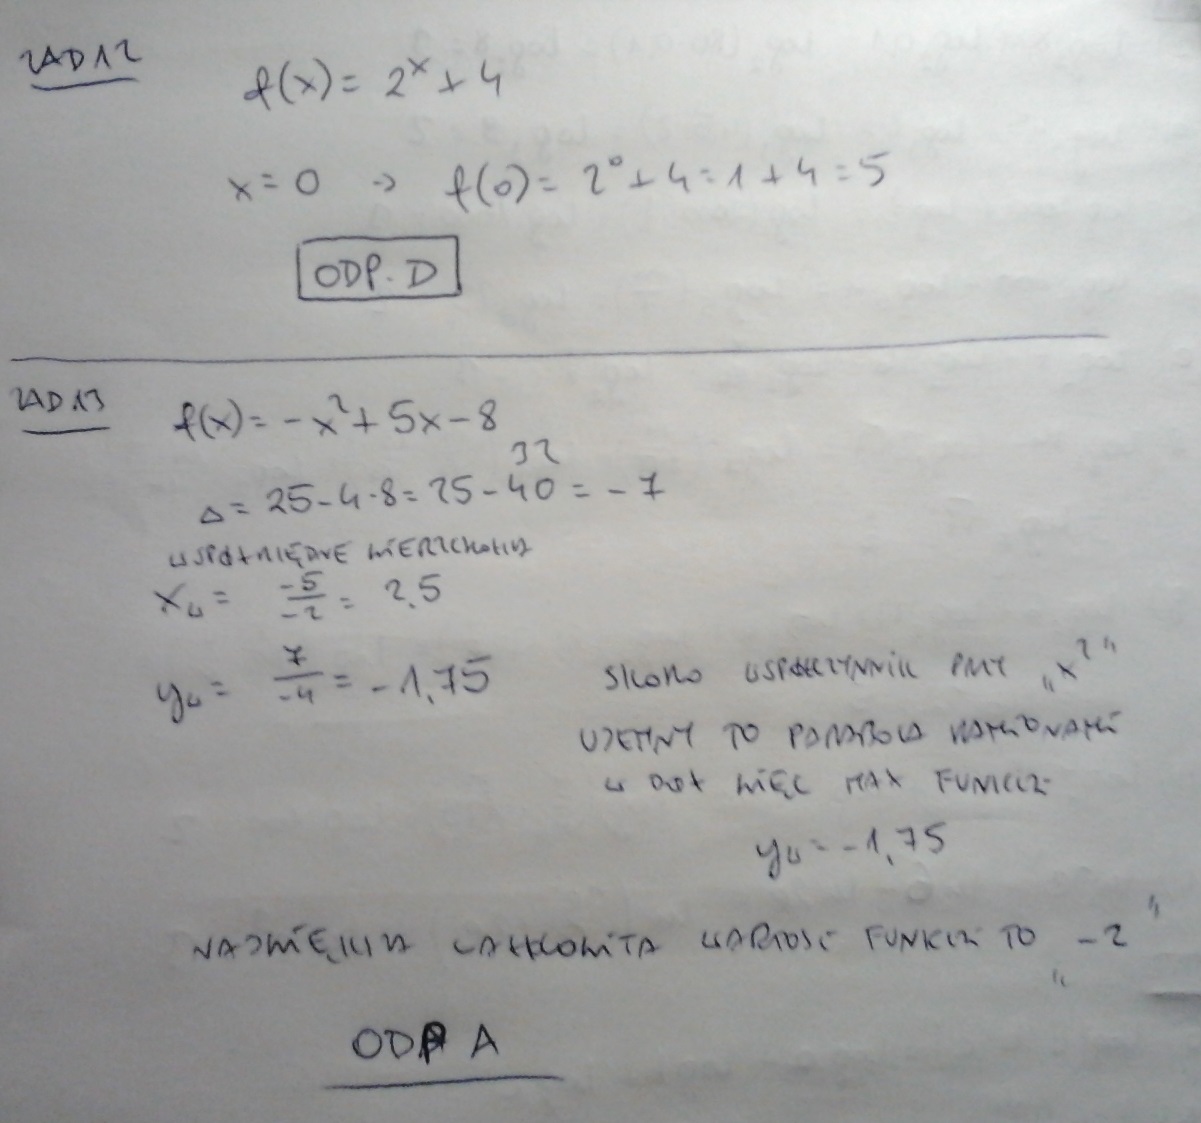 ZAD 12
f(x) = 2^x + 4
x = 0 → f(0) = 2^0 + 4 = 1 + 4 = 5
ODP. D
ZAD 13
f(x) = -x² + 5x - 8
32
Δ = 25 - 4·8 = 25 - 40 = -7
WSPÓŁRZĘDNE WIERZCHOŁKA
xw = -5/-2 = 2,5
yw = 7/-4 = -1,75
SKORO WSPÓŁCZYNNIK PRZY „x²"
UJEMNY TO PARABOLA RAMIONAMI
W DÓŁ WIĘC MAX FUNKCJI
yw = -1,75
NAJWIĘKSZA CAŁKOWITA WARTOŚĆ FUNKCJI TO „-2"
ODP A